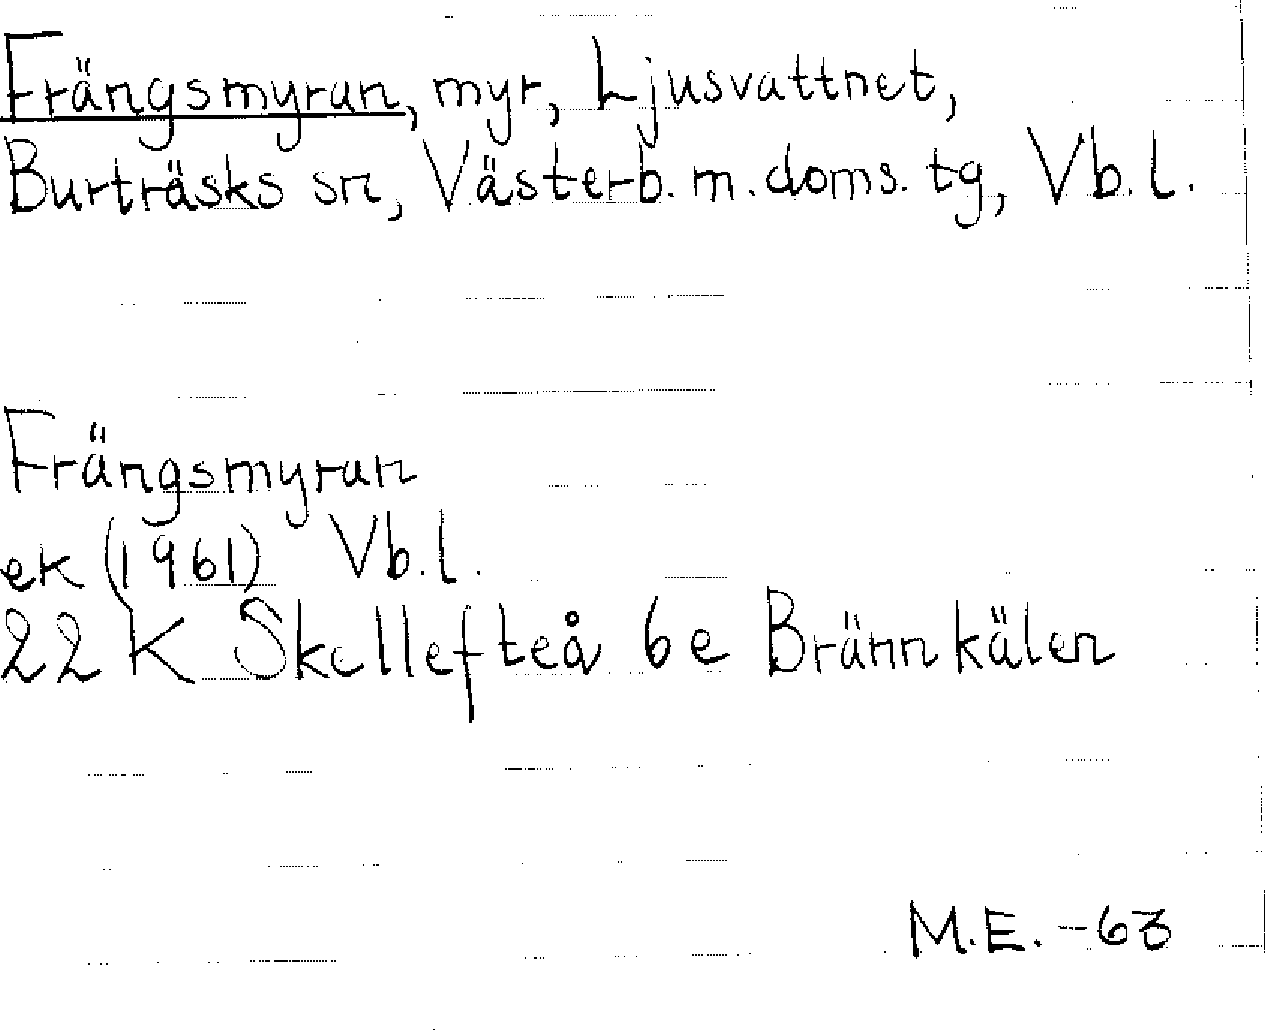 Frängsmyran, myr, Ljusvattnet,
Burträsks sn, Västerb. m. doms. tg, Vb. l.
Frängsmyran
ek (1961) Vb. l.
22 K Skellefteå 6e Brännkälen
M.E. -63